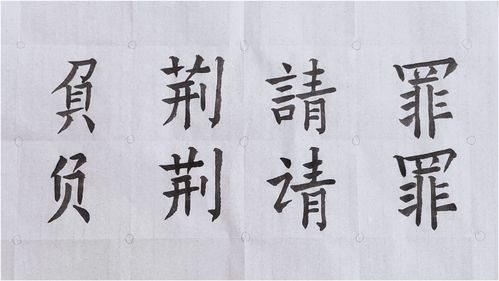 負荆請罪
负荆请罪